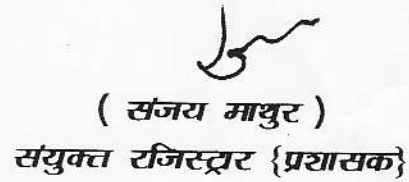 ( संजय माथुर )
संयुक्त रजिस्ट्रार {प्रशासक}